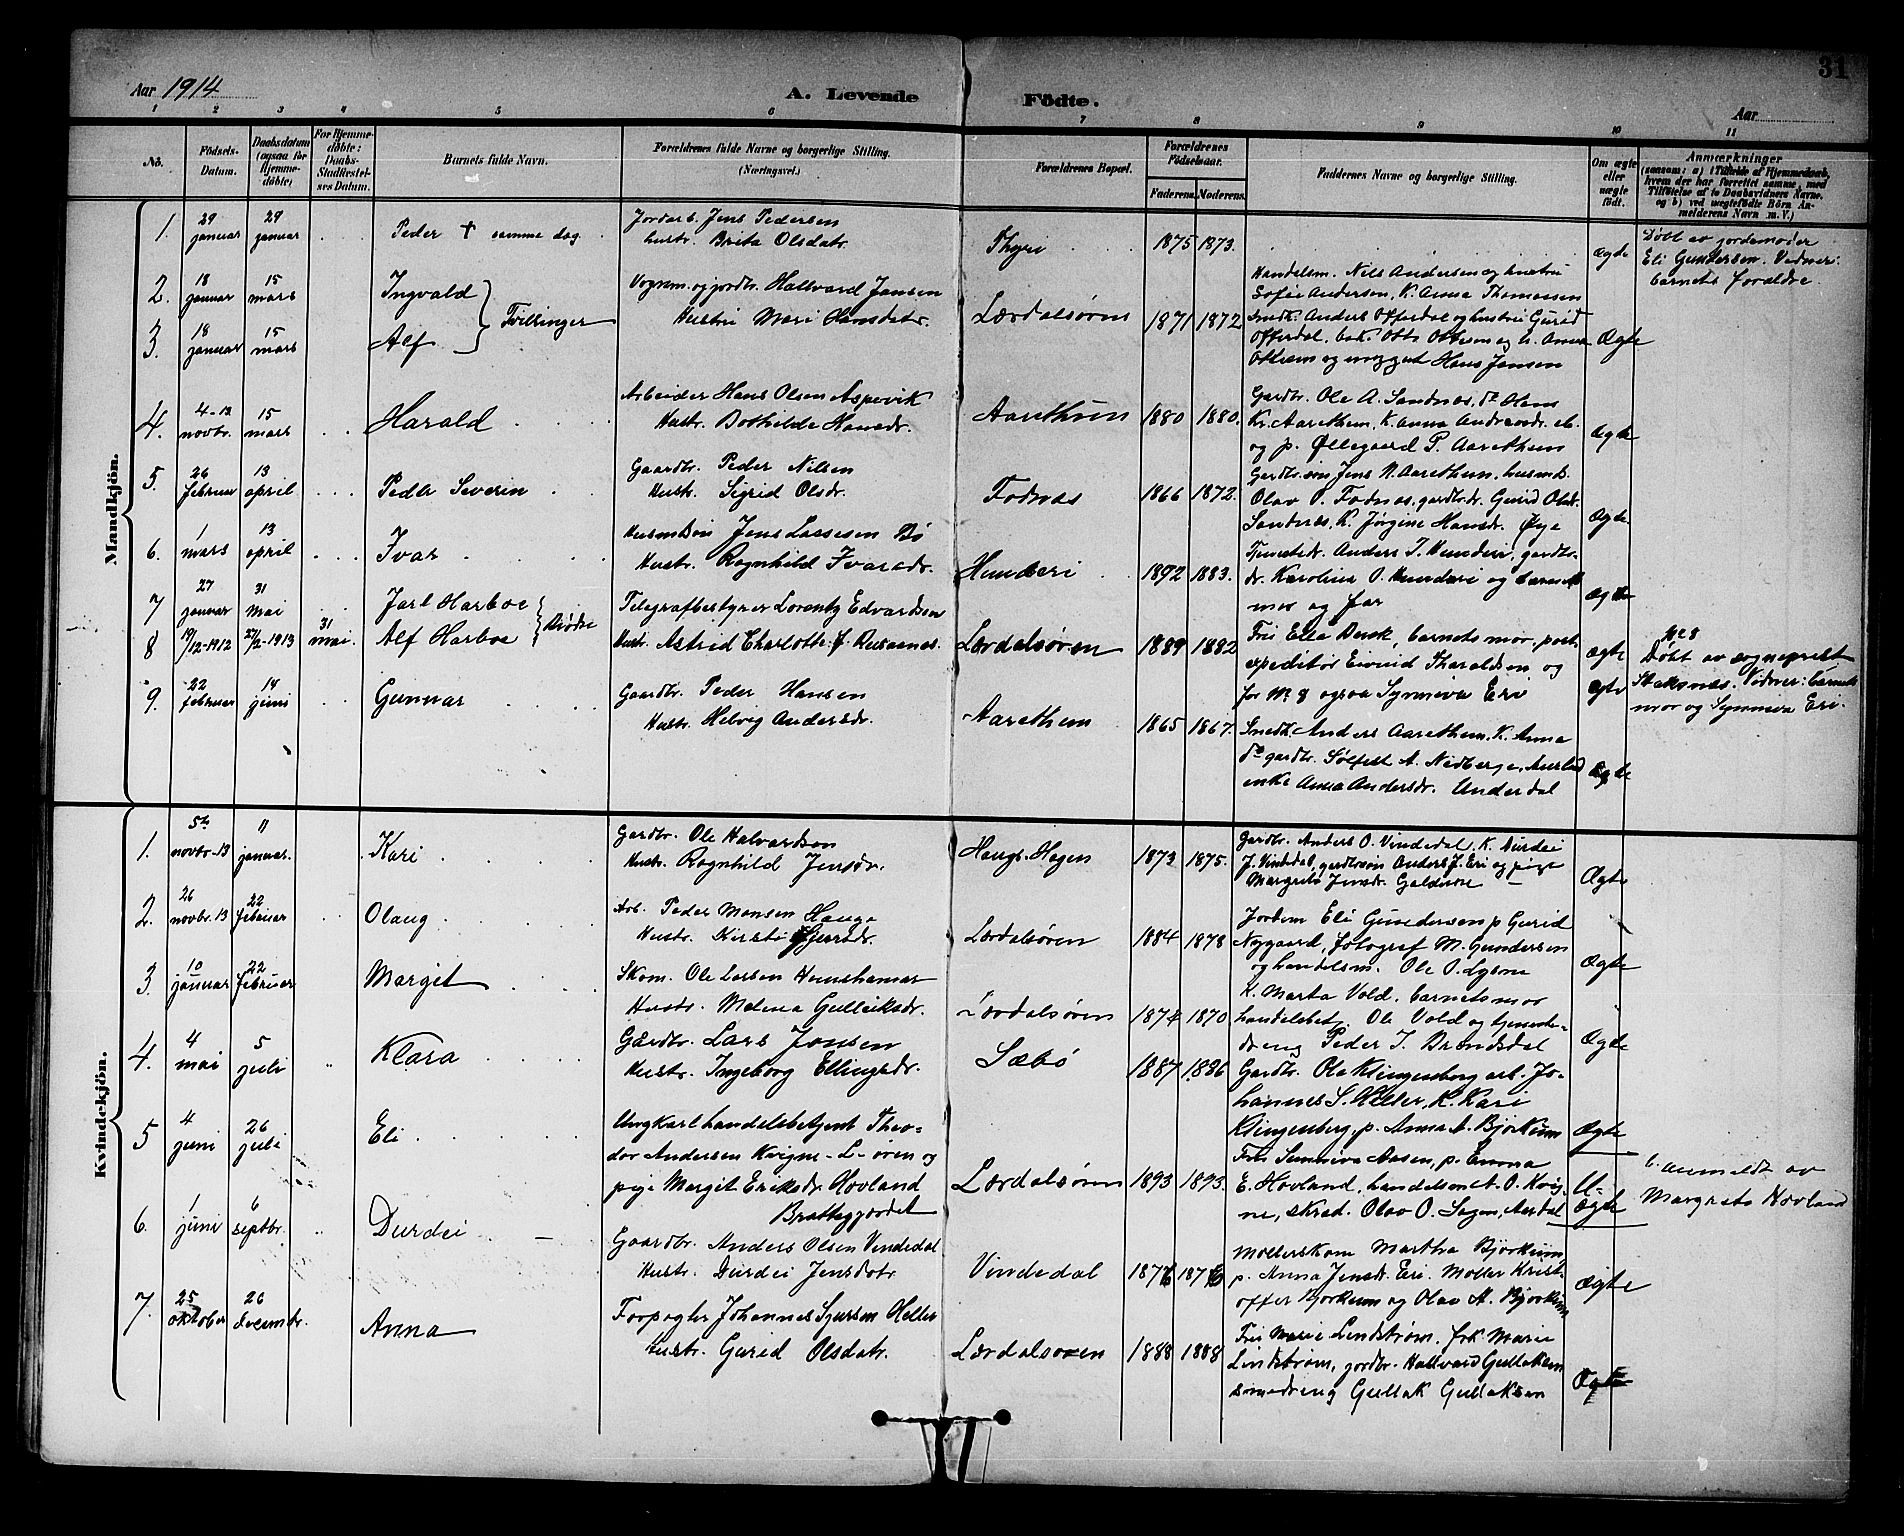 31
Aar 1914
A. Levende Födte.
Aar
1 2 3 4 5 6 7 8 9 10 11
No.
Födsels-Datum.
Daabsdatum (ogsaa for Hjemmedöbte)
For Hjemmedöbte: Daabs-Stadfæstelses Datum.
Barnets fulde Navn.
Forældrenes fulde Navne og borgerlige Stilling. (Næringsvei.)
Forældrenes Bopæl.
Forældrenes Födselsaar.
Faderens. Moderens.
Faddernes Navne og borgerlige Stilling.
Om ægte eller uægte födt.
Anmærkninger
(saasom: a) Tilfælde af Hjemmedaab, hvem der har forrettet samme, med Tilföielse af to Daabsvidners Navne, og b) ved uægtefödte Börn Anmelderens Navn m. V.)
Mandkjön.
1. 29 januar 29 januar Peder + samme dag
Jordarb. Jens Pedersen
hustr. Brita Olsdatr.
Thyri 1875 1873. Ægte
Døbt av jordemoder
Eli Gundersen. Vidner:
barnets foraldre.
2. 18 januar 15 mars Ingvald
3. 18 januar 15 mars Alf
Tvillinger
Vognm. og jordbr. Hallvard Jansen
Hustru Mari Hansdatr.
Lærdalsøren 1871 1872
Handelsm. Nils Andersen og hustru
Sofie Andersen, K. Anna Thomassen
Snedk. Anders Offerdal og hustru Gurid
Offerdal, bak. Otto Ottesen og h. Anna
Ottesen og unggut Hans Jansen
Ægte
4. 4-13 novbr. 15 mars Harald
Arbeider Hans Olsen Aspevik
Hustr. Bothilde Hansdr.
Aarethun 1880 1880.
Gardbr. Ole A. Sandnæs, do Hans
Kr. Aarethun, K. Anna Andreasdr.
og p. Øllegaard P. Aarethun
Ægte
5. 26 februar 13 april Peder Severin
Gaardbr. Peder Nilsen
Hustr. Sigrid Olsdr.
Fodnæs 1866 1872.
Gardbr.søn Jens N. Aarethun, husmds.
Olav O. Fodnæs, gardbr.dr. Gurid Olsdr.
Sandnæs, K. Jørgine Hansdr. Øye
Ægte.
6. 1 mars 13 april Ivar
Husmdsøn Jens Lassesen Bø
Hustr. Ragnhild Ivarsdr.
Hunderi 1892 1883.
Tjenestedr. Anders T. Hunderi, gardbr.
dr. Karolina O. Hunderi og barnets
mor og far
Ægte
7 27 januar 31 mai Jarl Harboe
8 19/12-1912 27/2-1913 31 mai. Alf Harboe
Brødre
Telegrafbestyrer Lorentz Edvardsen
Hustr. Astrid Charlotte f. Rusaanes.
Lærdalsøren 1889 1882
Fru Ella Dusk, barnets mor, post-
expeditør Eivind Tharaldsen og
for No 8 ogsaa Synneva Eri
Ægte
Ægte
No 8
Døbt av sogneprest
Staksnæs. Vidner: barnets
mor og Synneva Eri.
9. 22 februar 14 juni Gunnar
Gaardbr. Peder Hansen
Hustr. Helvig Andersdr.
Aarethun 1865 1867.
Snedk. Anders Aarethun, K. Anna
do gardbr. Sølfest A. Nedberge, Aurland
enke Anna Andersdr. Underdal
Ægte
Kvindekjön.
1. 5te novbr-13 11 januar. Kari
Gardbr. Ole Halvardson
Hustr. Ragnhild Jensdr.
Haugs-Hagen 1873 1875.
Gardbr. Anders O. Vindedal, K. Durdei
J. Vindedal, gardbrsøn Anders J. Eri og pige
Margreta Jensdr. Galderne
Ægte
2. 26 novbr. 13 22 februar Olaug
Arb. Peder Monsen Hauge
Hustr. Kirsti Sjursdr.
Lærdalsøren 1884 1878
Jordem. Eli Gundersen p Gurid
Nygaard, fotograf M. Gundersen
og handelsm. Ole O. Lysne
Ægte
3. 10 januar 22 februar Margit
Skom. Ole Larsen Hunshamar
Hustr. Malena Gulleiksdr.
Lærdalsøren 1874 1870
K. Marta Vold, barnets mor
handelsbetj. Ole Vold og tjeneste-
dreng Peder I. Brændsdal
Ægte
4. 4 mai 5 juli Klara
Gårdbr. Lars Jonsen
Hustr. Ingeborg Ellingsdr.
Sæbø 1887 1886
Gardbr. Ola Klingenberg arb. Jo-
hannes S. Heller, K. Kari
Klingenberg, p. Anna A. Bjørkum
Ægte
5 4 juni 26 juli Eli
Ungkarl handelsbetjent Theo-
dor Andersen Kvigne L-øren og
pige Margit Eriksdr Hovland
Brattegjerdet
Lærdalsøren 1893 1893.
Fru Sunniva Aasen, p. Emma
E. Hovland, handelsm A. O. Kvig-
ne, skræd. Olav O. Sagen, Aardal
U-ægte
b. anmeldt av
Margrete Hovland
6. 1 juni 6 septbr. Durdei
Gaardbr. Anders Olsen Vindedal
Hustr. Durdei Jensdatr.
Vindedal 1876 1876
Møllerskone Martha Bjørkum
p. Anna Jensdr. Eri. Møller Krist-
offer Bjørkum og Olav A. Bjørkum
Ægte
7. 25 oktober 26 decembr. Anna
Forpagter Johannes Sjursen Heller
Hustr. Gurid Olsdatr.
Lærdalsøren 1888 1888
Fru Marie Lindstrøm, frk Marie
Lindstrøm, jordbr. Hallvard Gullaksen
smedreng Gullak Gullaksen
Ægte